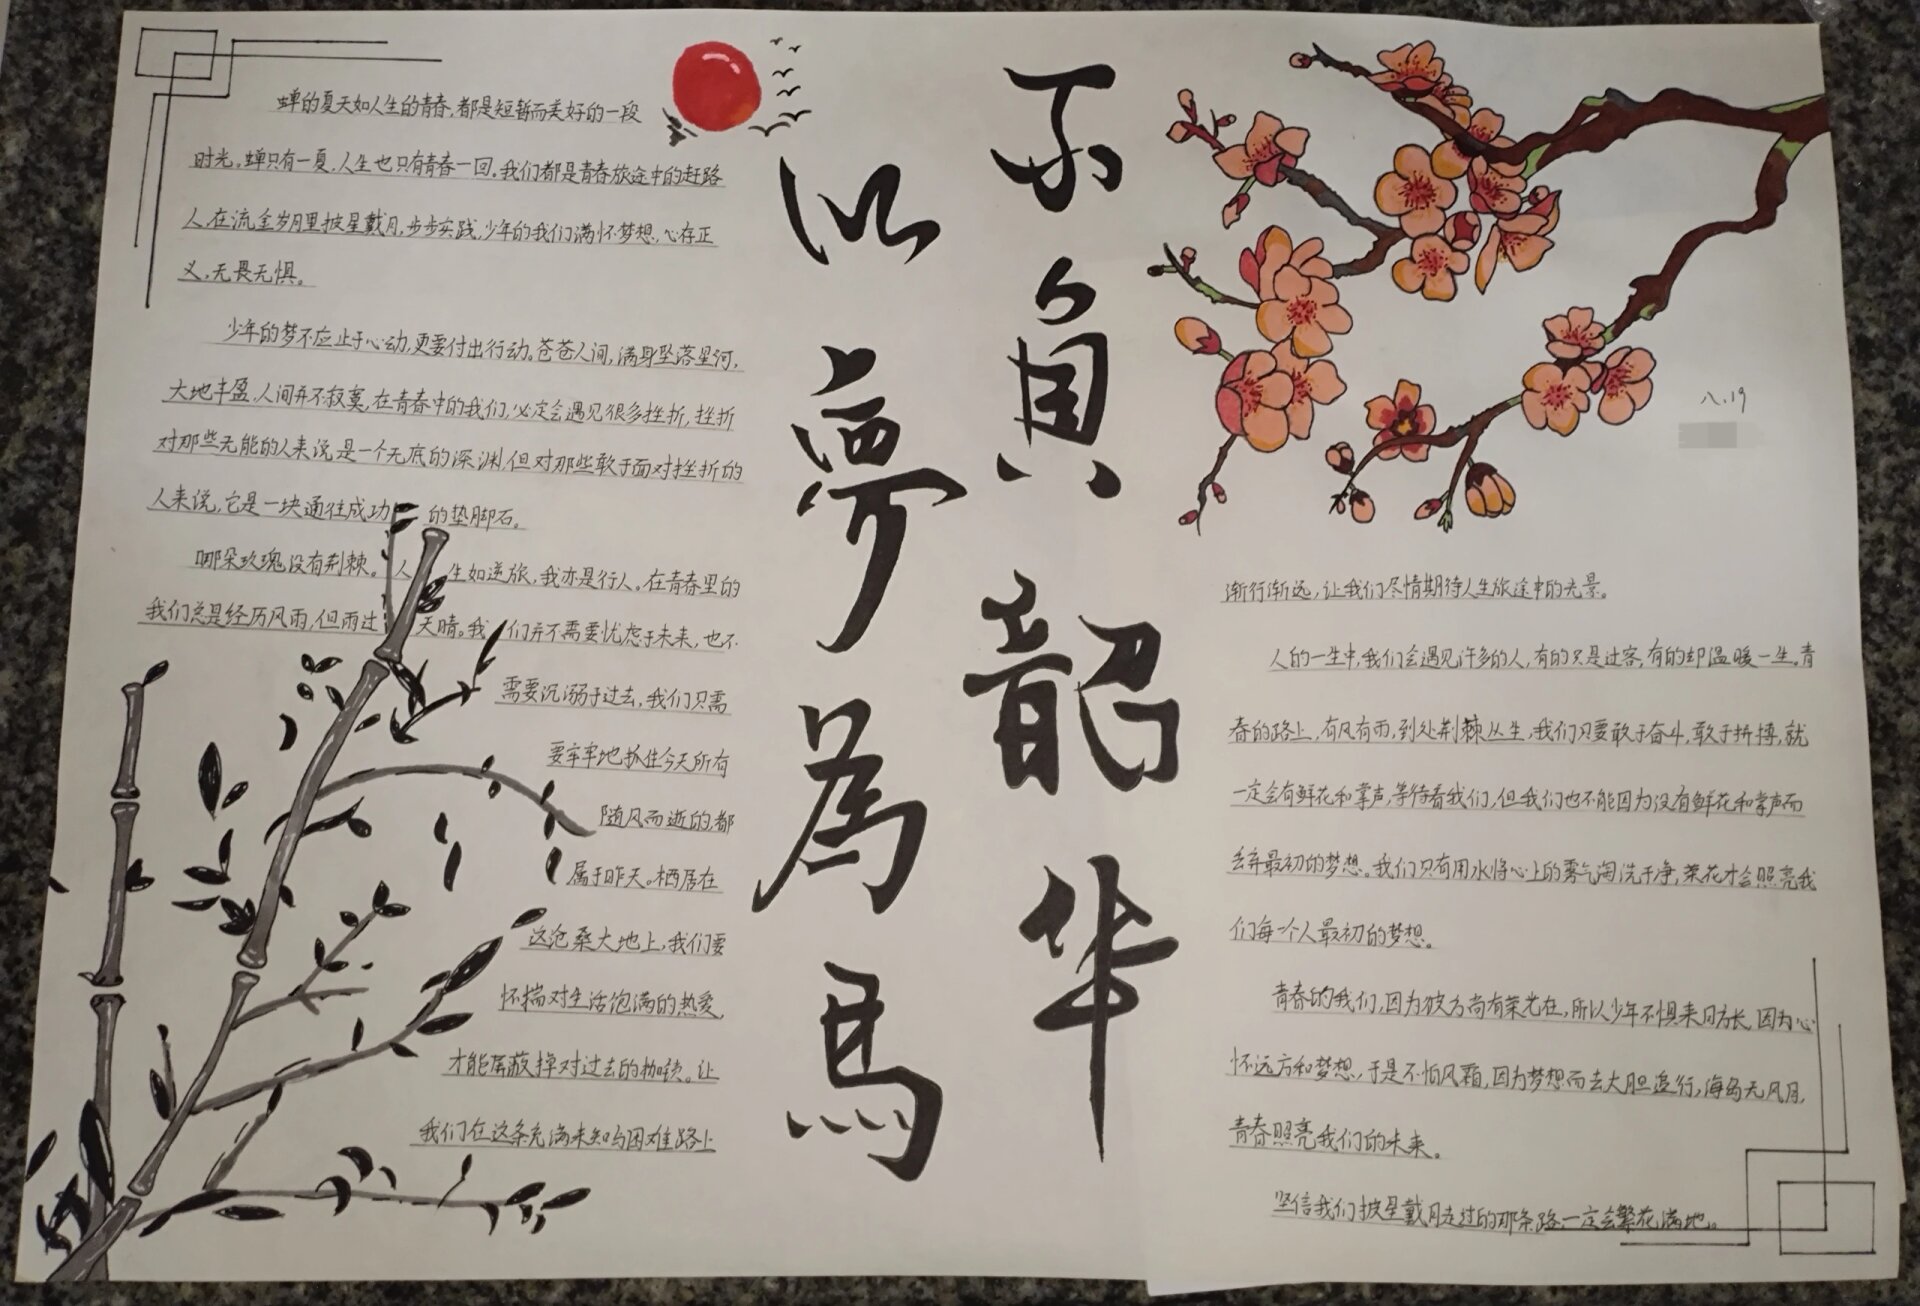 蝉的夏天如人生的青春,都是短暂而美好的一段
时光。蝉只有一夏,人生也只有青春一回。我们都是青春旅途中的赶路
人,在流金岁月里披星戴月,步步实践,少年的我们满怀梦想,心存正
义,无畏无惧。
少年的梦不应止于心动,更要付出行动。苍苍人间,满身坠落星河,
大地丰盈,人间并不寂寞,在青春中的我们,必定会遇见很多挫折,挫折
对那些无能的人来说是一个无底的深渊,但对那些敢于面对挫折的
人来说,它是一块通往成功的垫脚石。
哪朵玫瑰没有荆棘。人生如逆旅,我亦是行人。在青春里的
我们总是经历风雨,但雨过天晴。我们并不需要忧虑于未来,也不
需要沉溺于过去,我们只需
要牢牢地抓住今天所有
随风而逝的,都
属于昨天。栖居在
这沧桑大地上,我们要
怀揣对生活饱满的热爱,
才能屏蔽掉对过去的枷锁。让
我们在这条充满未知与困难路上
以梦為馬
不負韶华
八.19
渐行渐远,让我们尽情期待人生旅途中的光景。
人的一生中,我们会遇见许多的人,有的只是过客,有的却温暖一生。青
春的路上,有风有雨,到处荆棘丛生,我们只要敢于奋斗,敢于拼搏,就
一定会有鲜花和掌声,等待着我们,但我们也不能因为没有鲜花和掌声而
丢弃最初的梦想。我们只有用水将心上的雾气淘洗干净,荣花才会照亮我
们每一个人最初的梦想。
青春的我们,因为彼方尚有荣光在,所以少年不惧来日方长,因为心
怀远方和梦想,于是不怕风霜,因为梦想而去大胆追行,海岛无风月,
青春照亮我们的未来。
坚信我们披星戴月走过的那条路一定会繁花满地。